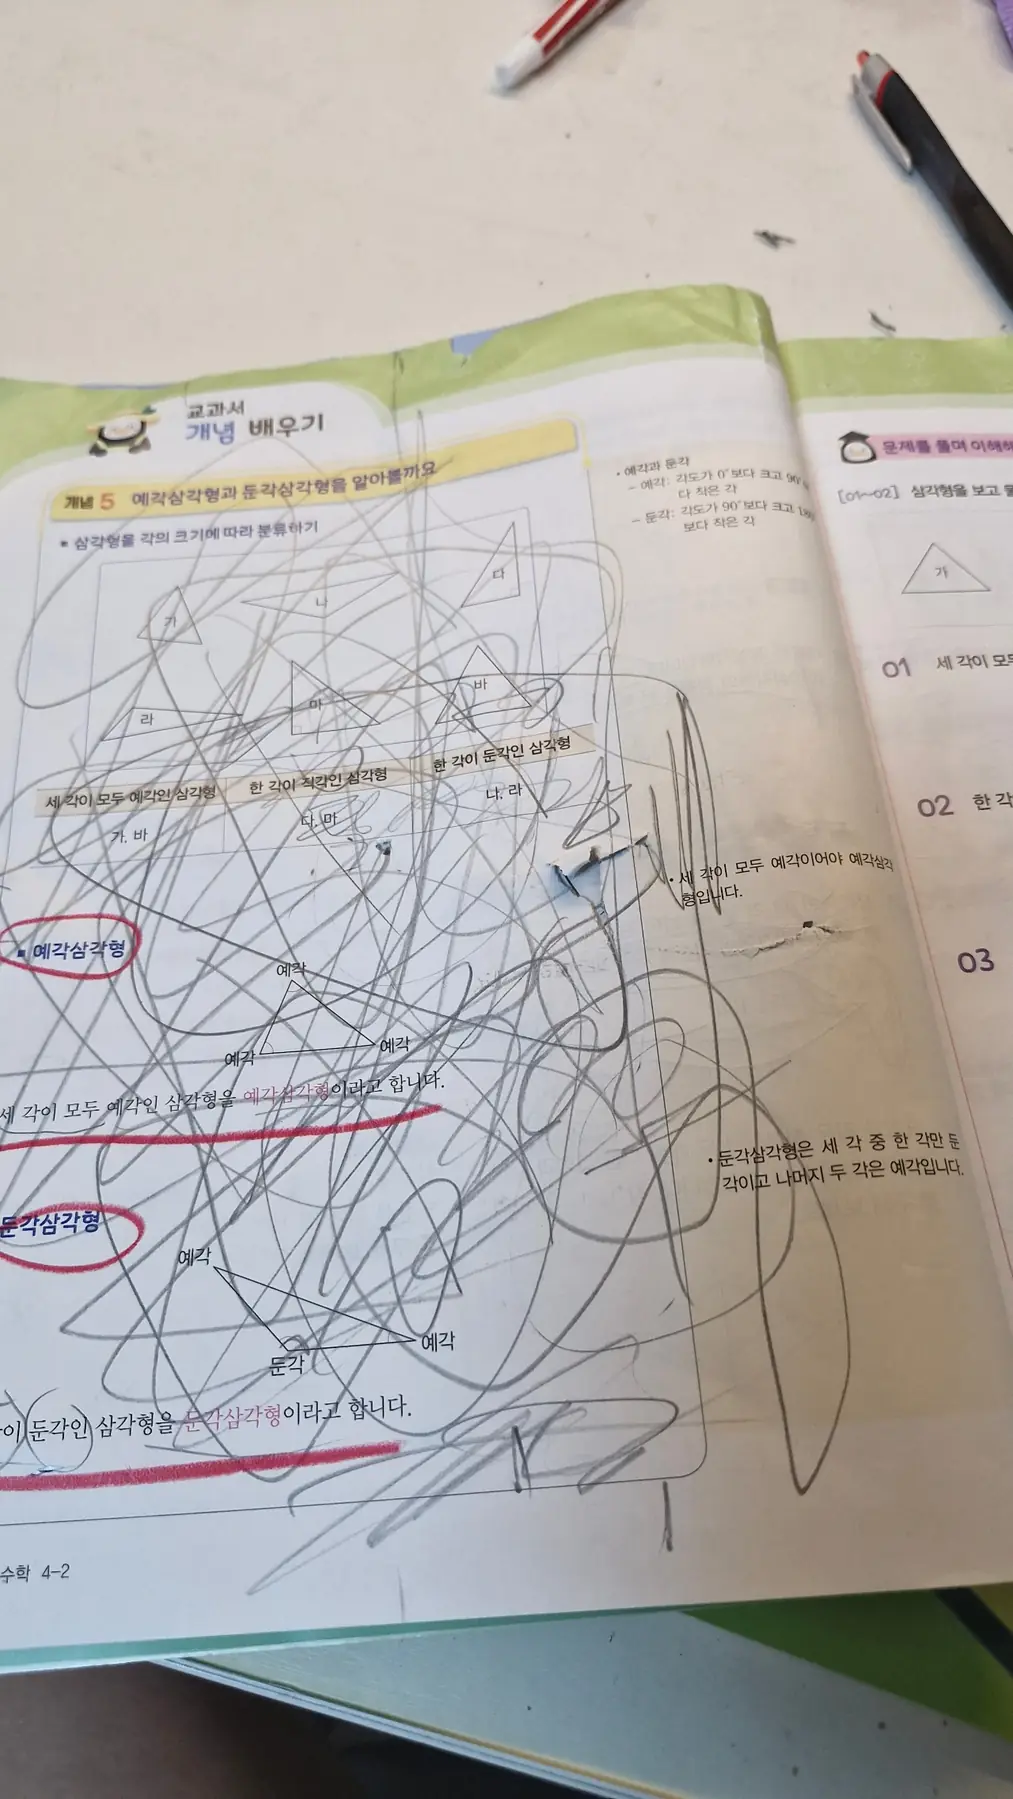 교과서
개념 배우기
개념 5 예각삼각형과 둔각삼각형을 알아볼까요
▪ 삼각형을 각의 크기에 따라 분류하기
가
나
다
라
마
바
세 각이 모두 예각인 삼각형
한 각이 직각인 삼각형
한 각이 둔각인 삼각형
가, 바
다, 마
나, 라
▪ 예각삼각형
예각
예각
예각
세 각이 모두 예각인 삼각형을 예각삼각형이라고 합니다.
둔각삼각형
예각
둔각
예각
이 둔각인 삼각형을 둔각삼각형이라고 합니다.
수학 4-2
• 예각과 둔각
- 예각: 각도가 0°보다 크고 90°
다 작은 각
- 둔각: 각도가 90°보다 크고 180
보다 작은 각
• 세 각이 모두 예각이어야 예각삼각
형입니다.
• 둔각삼각형은 세 각 중 한 각만 둔
각이고 나머지 두 각은 예각입니다.
문제를 풀며 이해해
[01~02] 삼각형을 보고 물
가
01 세 각이 모두
02 한 각
03